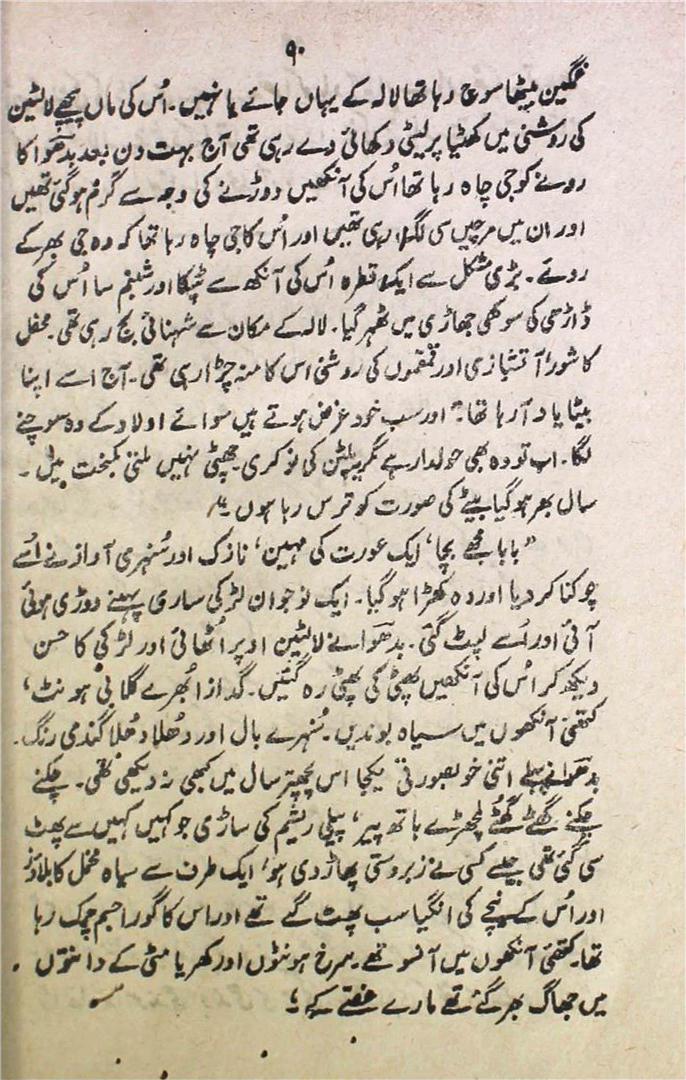 ۹۰
غمگین بیٹھا سوچ رہا تھا لالہ کے یہاں جائے یا نہیں۔ اُس کی ماں پیچھے لالٹین
کی روشنی میں کھٹیا پر لیٹی دکھائی دے رہی تھی آج بہت دن بعد بدھوا کا
رونے کو جی چاہ رہا تھا اُس کی آنکھیں دوڑنے کی وجہ سے گرم ہوگئی تھیں
اور ان میں مرچیں سی لگ رہی تھیں اور اُس کا جی چاہ رہا تھا کہ وہ جی بھر کے
روئے۔ بڑی مشکل سے ایک قطرہ اُس کی آنکھ سے ٹپکا اور شبنم سا اُس کی
ڈاڑھی کی سوکھی جھاڑی میں ٹھہر گیا۔ لالہ کے مکان سے شہنائی بج رہی تھی۔ محفل
کا شور آتشبازی اور قمقموں کی روشنی اس کا منہ چڑا رہی تھی۔ آج اسے اپنا
بیٹا یاد آرہا تھا۔" اور سب خود غرض ہوتے ہیں سوائے اولاد کے وہ سوچنے
لگا۔ اب تو وہ بھی حولدار ہے مگر یہ پلٹن کی نوکری۔ چھٹی نہیں ملتی کمبخت میں۔
سال بھر ہوگیا بیٹے کی صورت کو ترس رہا ہوں۔"
"بابا مجھے بچا، ایک عورت کی مہین، نازک اور سُنہری آواز نے اُسے
چوکنا کر دیا اور وہ کھڑا ہو گیا۔ ایک نوجوان لڑکی ساری پہنے دوڑی ہوئی
آئی اور اُسے لپٹ گئی۔ بدھوا نے لالٹین اوپر اُٹھائی اور لڑکی کا حسن
دیکھ کر اُس کی آنکھیں پھٹی کی پھٹی رہ گئیں۔ گداز اُبھرے گلابی ہونٹ،
کتھئی آنکھوں میں سیاہ بوندیں۔ سُنہرے بال اور دُھلا دُھلا گندمی رنگ۔
بدھوا نے پہلے اتنی خوبصورتی یکجا اس پچھتر سال میں کبھی نہ دیکھی تھی۔ چکنے
چکنے گھٹے گھٹے لچھڑے ہاتھ پیر، پیلی ریشم کی ساڑی جو کہیں کہیں سے پھٹ
سی گئی تھی جیسے کسی نے زبردستی پھاڑ دی ہو، ایک طرف سے سیاہ مخمل کا بلاوز
اور اُس کے نیچے کی انگیا سب پھٹ گئے تھے اور اس کا گورا جسم چمک رہا
تھا۔ کتھئی آنکھوں میں آنسو تھے۔ سرخ ہونٹوں اور کھریا مٹی کے دانتوں
میں جھاگ بھر گئے تھے مارے غصّے کے،